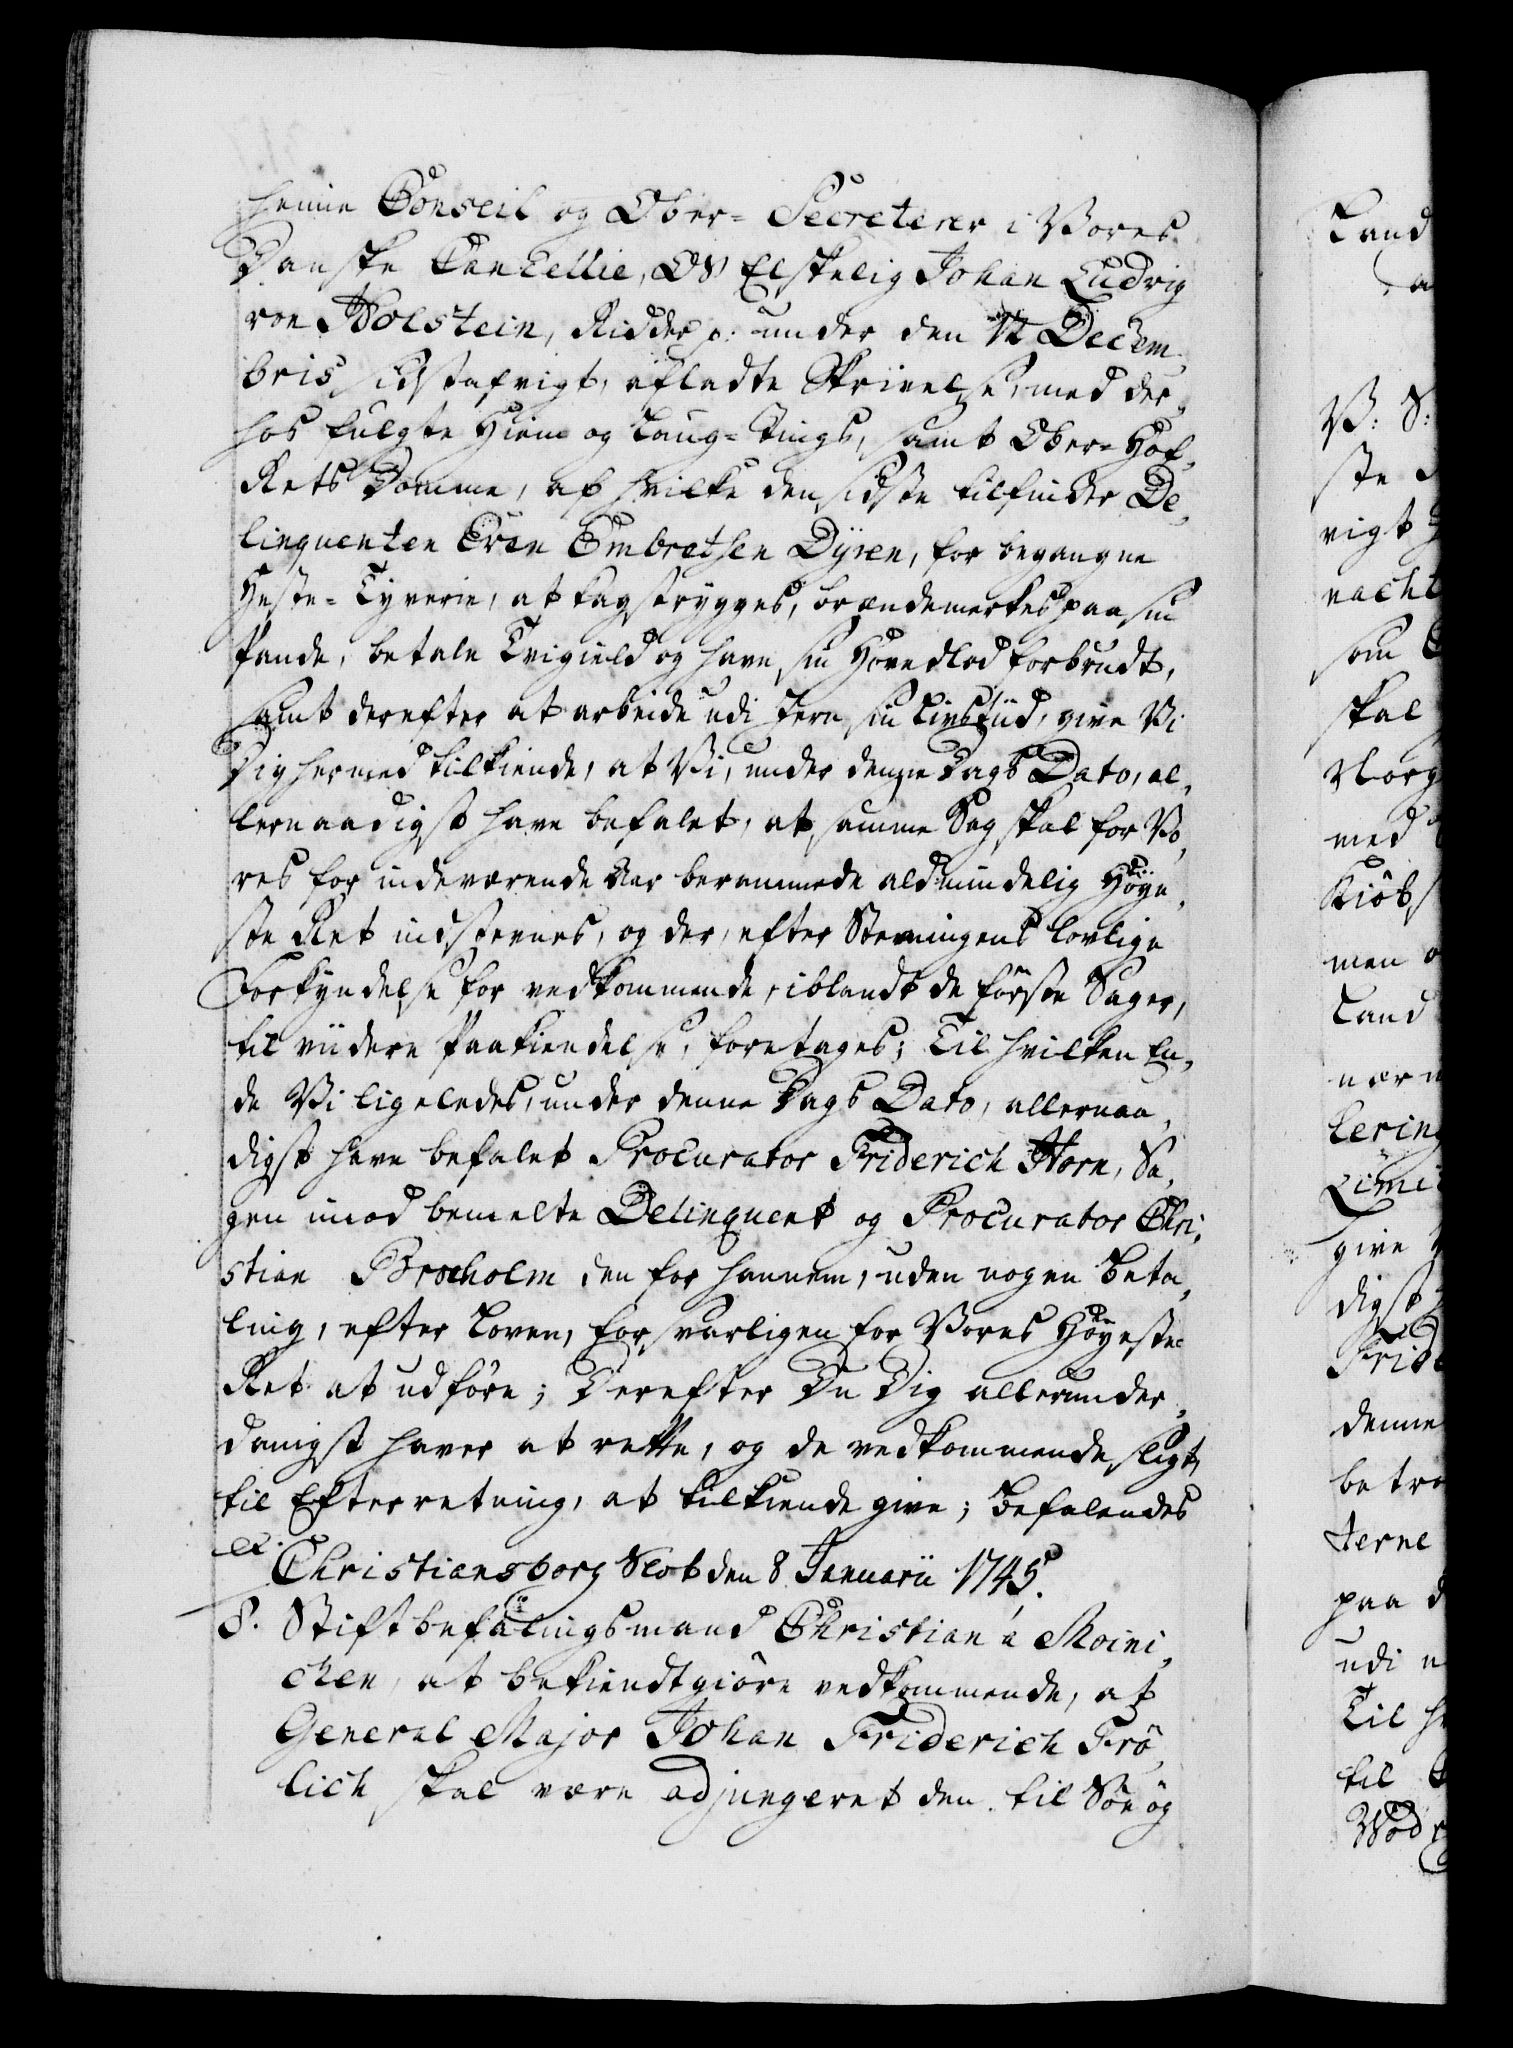 heime Conseil og Ober-Secreterer i Vores
Danske Cancellie, Os Elskelig Johan Ludvig
von Holstein, Ridder p: under den 12 Decem-
bris sidstafvigt, afladte Skrivelse, med der-
hos fulgte Hiem og Laug-Tings, samt Ober-Hof-
Rets Domme, af hvilke den sidste tilfinder De-
linquenten Even Embretsen Dÿren, for begangne
Heste-Tyverie, at kagstryges, brændemerkes paa sin
Pande, betale Tvigield og have sin Hovedlod forbrudt,
samt derefter at arbeide udi Jern sin Livstiid, give Vi
Dig hermed tilkiende, at Vi, under denne Dags Dato, al-
lernaadigst have befalet, at samme Sag skal for Vo-
res for indeværende Aar berammede aldmindelig Höye-
ste Ret indstevnes, og der, efter Stevningens lovlige
Forkyndelse for vedkommende, iblandt de förste Sager,
til viidere Paakiendelse, foretages; Til hvilken En-
de Vi ligeledes, under denne Dags Dato, allernaa-
digst have befalet Procurator Friderich Horn, Sa-
gen imod bemelte Delinquent og Procurator Chri-
stian Brocholm den for hannem, uden nogen Beta-
ling, efter Loven, forsvarligen for Vores Höyeste
Ret at udföre; Derefter Du Dig allerunder-
danigst haver at rette, og de vedkommende sligt
til Efterretning, at tilkiende give; Befalendes
etc. Christiansborg Slot den 8 Januarii 1745.
S. Stiftbefalingsmand Christian á Moini-
chen, at bekiendtgiöre vedkommende, at
General Major Johan Friderich Frö-
lich skal være adjungeret den til Söe og
Land
V: S:
ste
vigt
nacht
som
skal
Norg
med
Kiöb
men
Land
nær
lering
Limi
give
digst
Frid
denne
betro
terne
paa d
udi
Til h
til
Mod